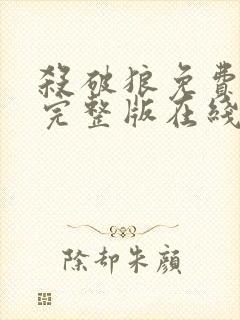 殺破狼免費
完整版在綫
除却朱顔